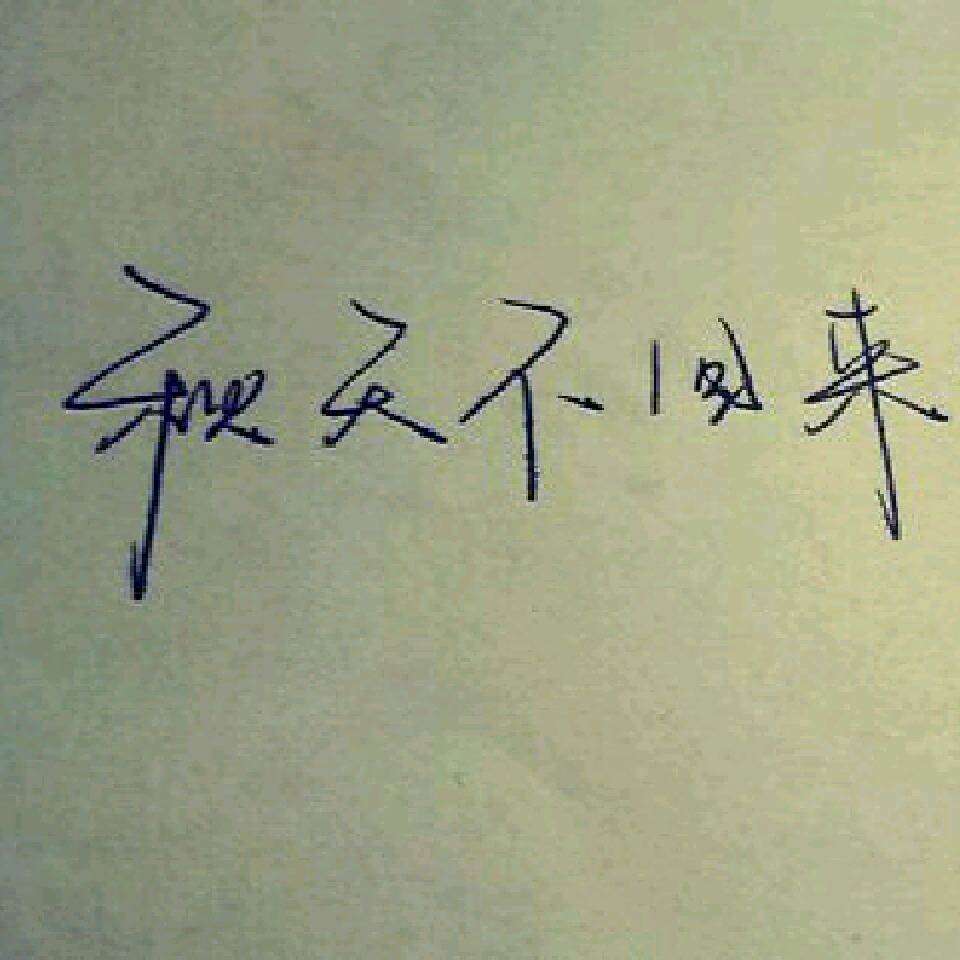 秋天不回来